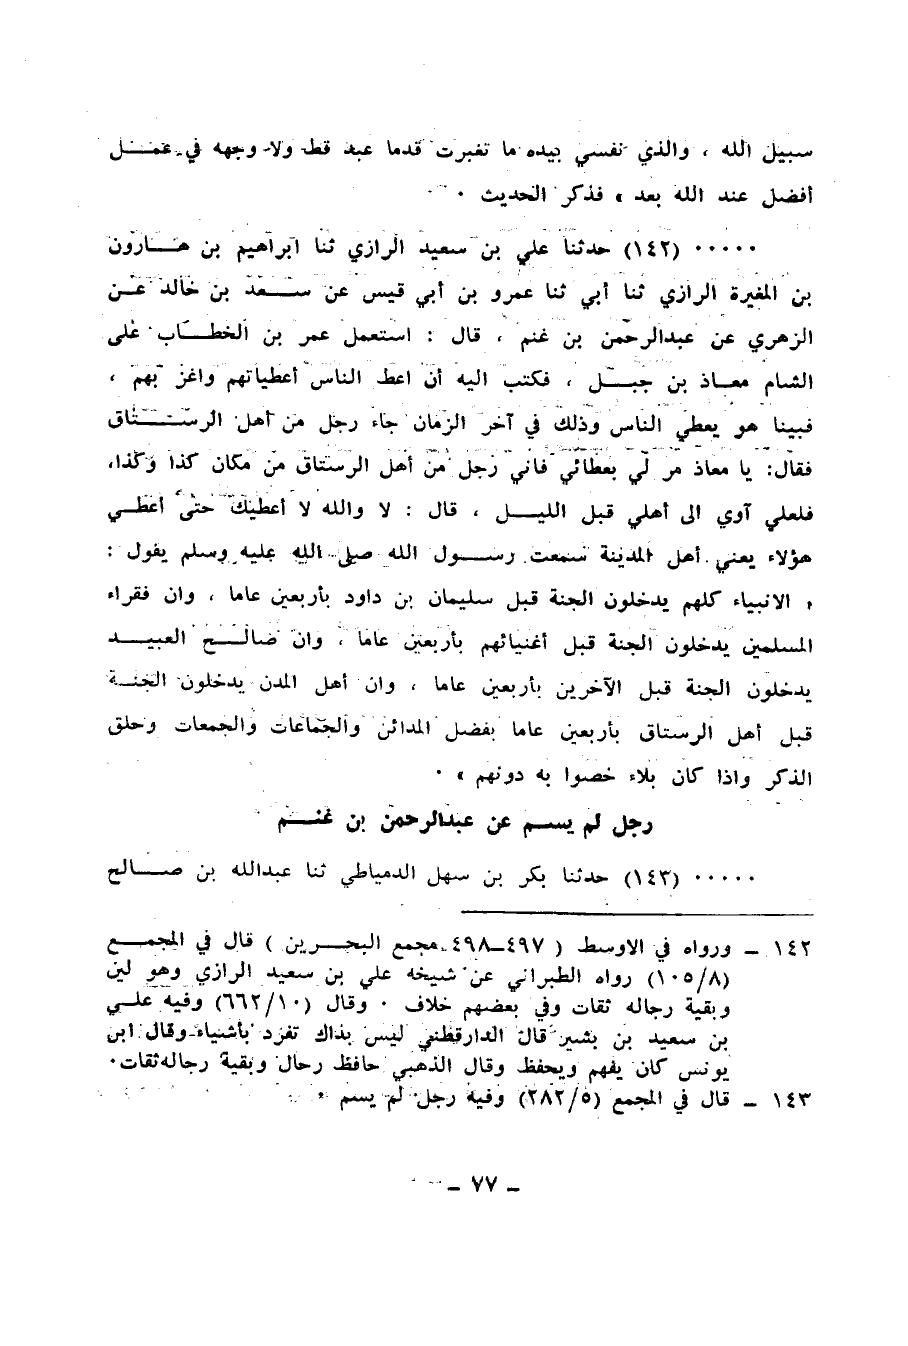 سبيل الله ، والذي نفسي بيده ما تغبرت قدما عبد قط ولا وجهه في عمل
أفضل عند الله بعد » فذكر الحديث ٠
٠٠٠٠٠ (١٤٢) حدثنا علي بن سعيد الرازي ثنا ابراهيم بن هارون
بن المغيرة الرازي ثنا أبي ثنا عمرو بن أبي قيس عن سعد بن خالد عن
الزهري عن عبدالرحمن بن غنم ، قال : استعمل عمر بن الخطاب على
الشام معاذ بن جبل ، فكتب اليه أن اعط الناس أعطياتهم واغز بهم ،
فبينا هو يعطي الناس وذلك في آخر الزمان جاء رجل من أهل الرستاق
فقال: يا معاذ مر لي بعطائي فاني رجل من أهل الرستاق من مكان كذا وكذا،
فلعلي آوي الى أهلي قبل الليل ، قال : لا والله لا أعطيك حتى أعطي
هؤلاء يعني أهل المدينة سمعت رسول الله صلى الله عليه وسلم يقول :
« الانبياء كلهم يدخلون الجنة قبل سليمان بن داود بأربعين عاما ، وان فقراء
المسلمين يدخلون الجنة قبل أغنيائهم بأربعين عاما ، وان صالح العبيد
يدخلون الجنة قبل الآخرين بأربعين عاما ، وان أهل المدن يدخلون الجنة
قبل أهل الرستاق بأربعين عاما بفضل المدائن والجماعات والجمعات وحلق
الذكر واذا كان بلاء خصوا به دونهم » ٠
رجل لم يسم عن عبدالرحمن بن غنم
٠٠٠٠٠ (١٤٣) حدثنا بكر بن سهل الدمياطي ثنا عبدالله بن صالح
١٤٢ ـ ورواه في الاوسط ( ٤٩٧ـ٤٩٨ مجمع البحرين ) قال في المجمع
(١٠٥/٨) رواه الطبراني عن شيخه علي بن سعيد الرازي وهو لين
وبقية رجاله ثقات وفي بعضهم خلاف ٠ وقال (٦٦٢/١٠) وفيه علي
بن سعيد بن بشير قال الدارقطني ليس بذاك تفرد بأشياء وقال ابن
يونس كان يفهم ويحفظ وقال الذهبي حافظ رحال وبقية رجاله ثقات٠
١٤٣ ـ قال في المجمع (٢٨٢/٥) وفيه رجل لم يسم ٠
ـ ٧٧ ـ